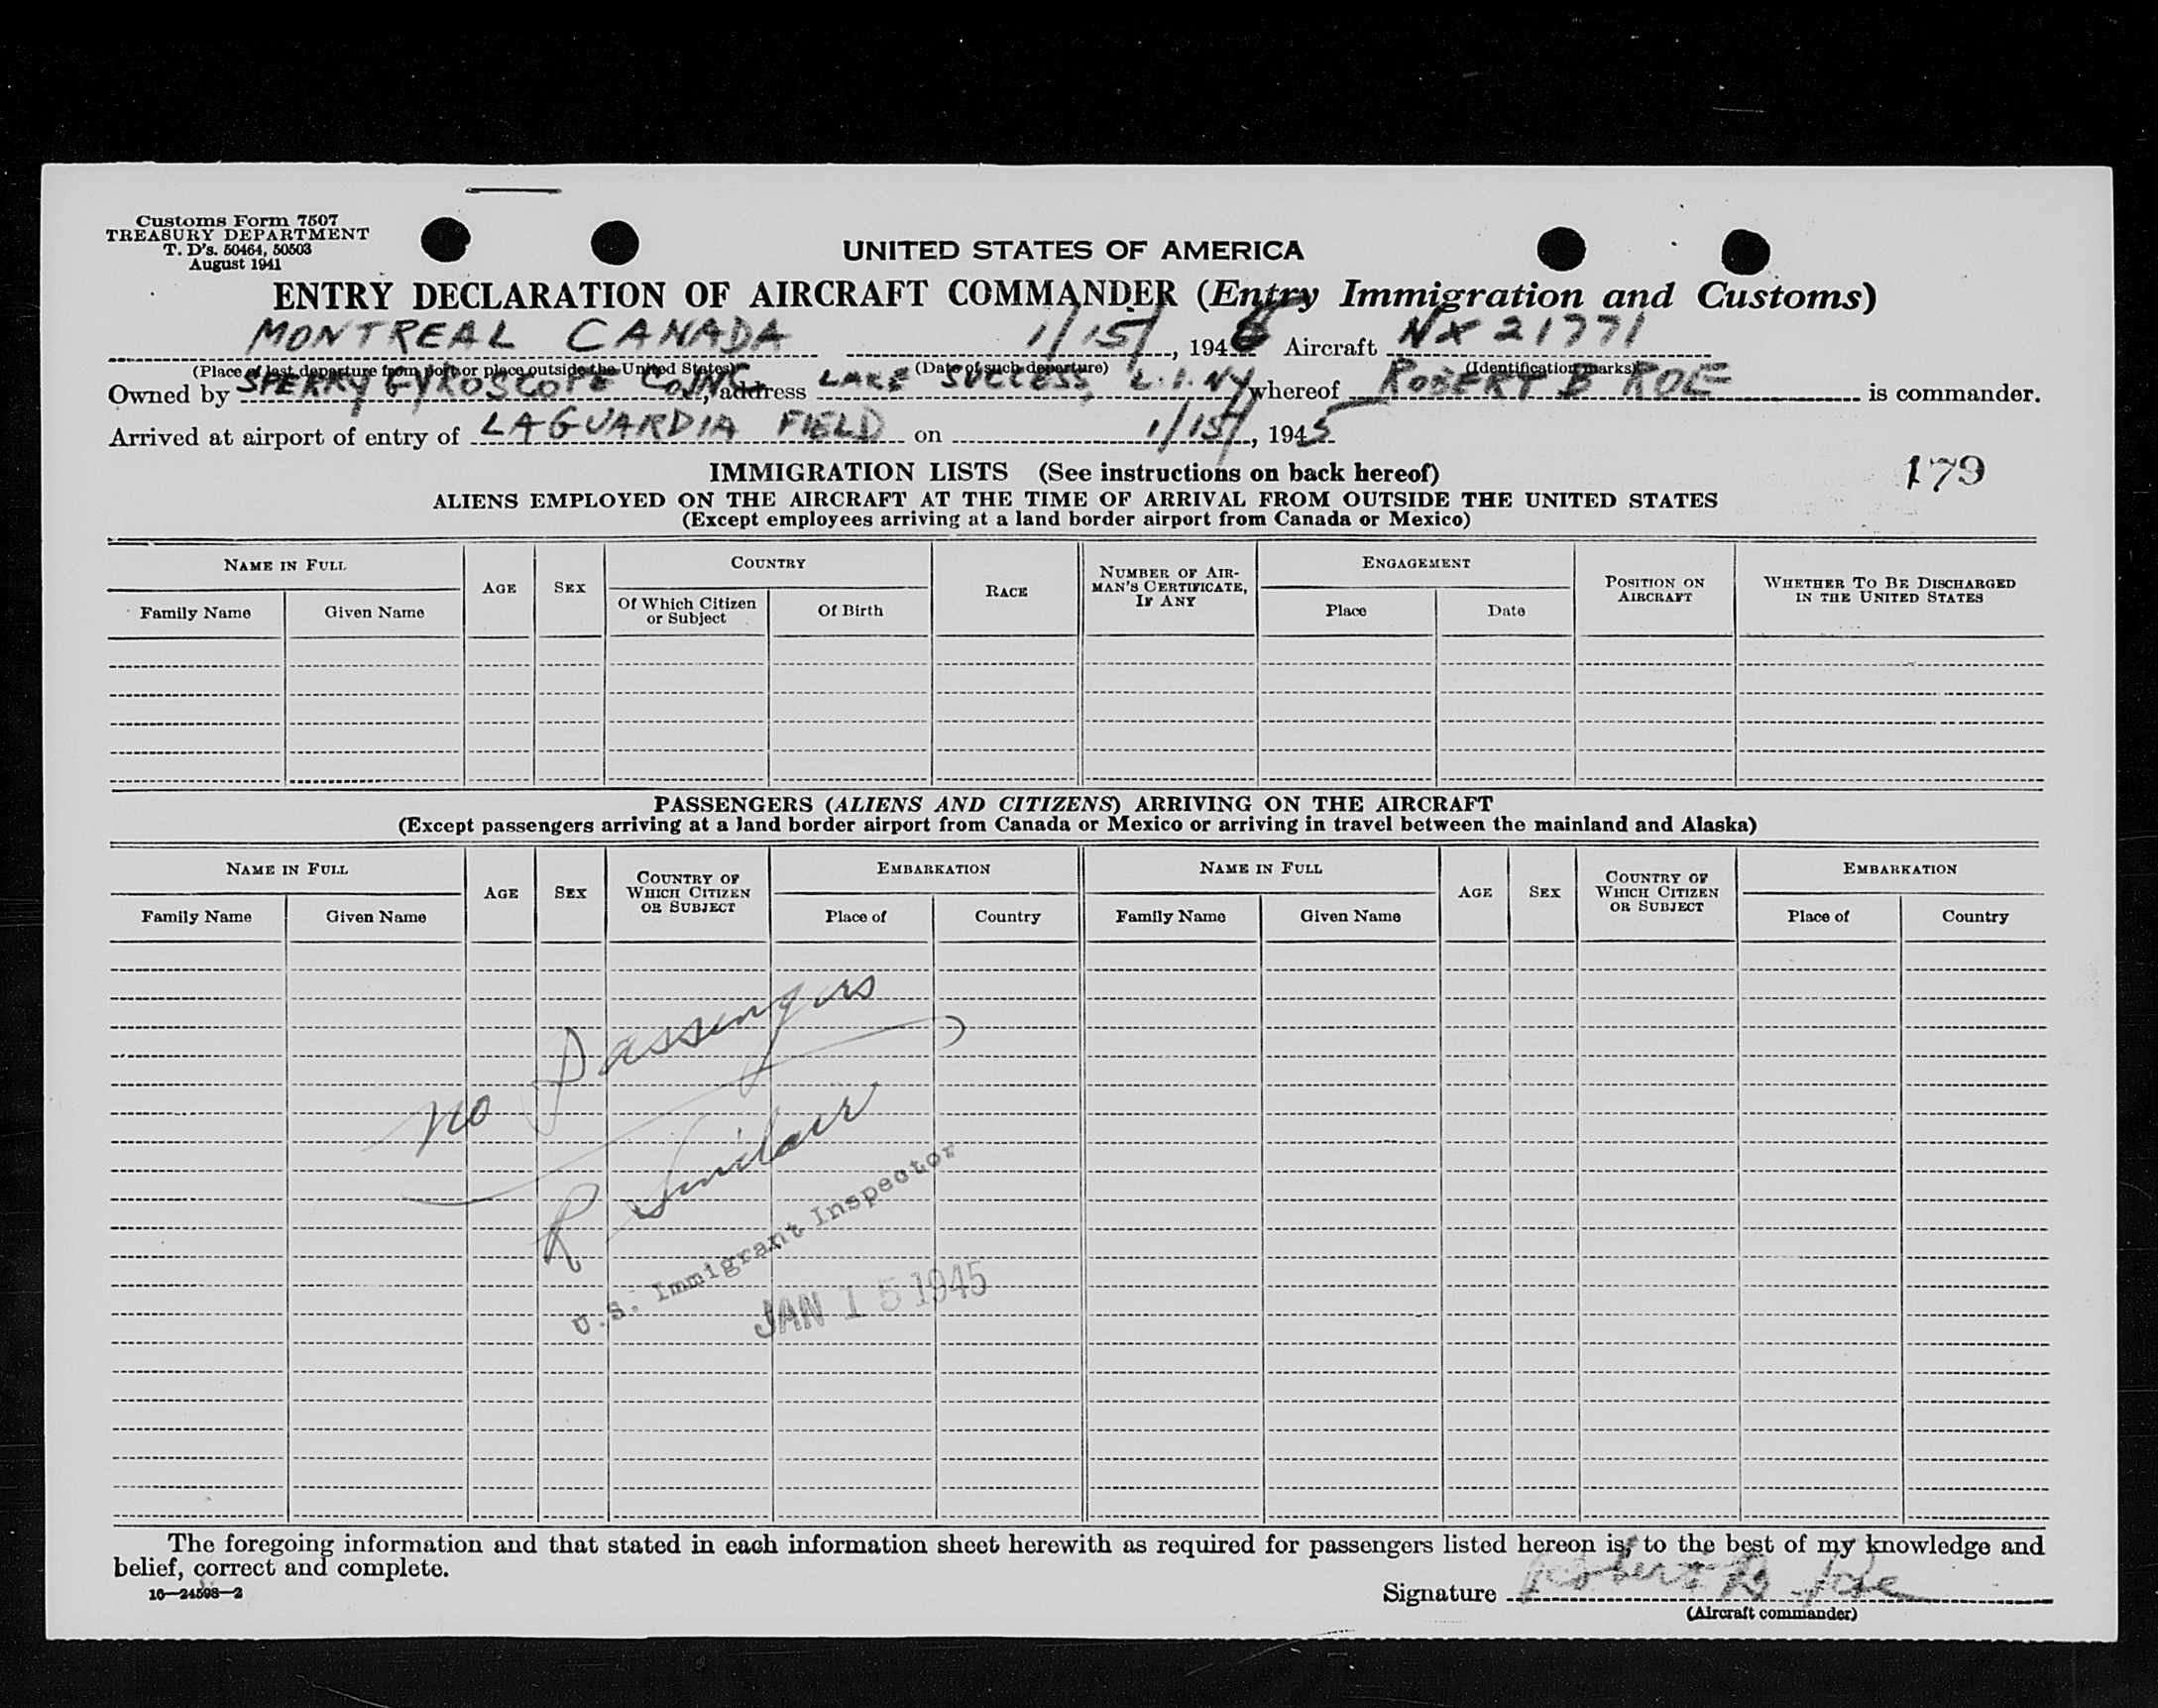 Customs Form 7507
TREASURY DEPARTMENT
T. D's. 50464, 50503
August 1941
UNITED STATES OF AMERICA
ENTRY DECLARATION OF AIRCRAFT COMMANDER (Entry Immigration and Customs)
MONTREAL CANADA 1/15/, 194 Aircraft NX 21771
(Place of last departure from port or place outside the United States) (Date of such departure) (Identification marks)
Owned by SPERRY GYROSCOPE Co INC, address LAKE SUCCESS, L.I. NY whereof ROBERT B ROE is commander.
Arrived at airport of entry of LAGUARDIA FIELD on 1/15/, 1945
IMMIGRATION LISTS (See instructions on back hereof) 179
ALIENS EMPLOYED ON THE AIRCRAFT AT THE TIME OF ARRIVAL FROM OUTSIDE THE UNITED STATES
(Except employees arriving at a land border airport from Canada or Mexico)
NAME IN FULL AGE SEX COUNTRY RACE NUMBER OF AIRMAN'S CERTIFICATE, IF ANY ENGAGEMENT POSITION ON AIRCRAFT WHETHER TO BE DISCHARGED IN THE UNITED STATES
Family Name Given Name Of Which Citizen or Subject Of Birth Place Date
PASSENGERS (ALIENS AND CITIZENS) ARRIVING ON THE AIRCRAFT
(Except passengers arriving at a land border airport from Canada or Mexico or arriving in travel between the mainland and Alaska)
NAME IN FULL AGE SEX COUNTRY OF WHICH CITIZEN OR SUBJECT EMBARKATION NAME IN FULL AGE SEX COUNTRY OF WHICH CITIZEN OR SUBJECT EMBARKATION
Family Name Given Name Place of Country Family Name Given Name Place of Country
No Passengers
R Sinclair
U.S. Immigrant Inspector
JAN 15 1945
The foregoing information and that stated in each information sheet herewith as required for passengers listed hereon is, to the best of my knowledge and
belief, correct and complete.
16—24598—2
Signature Robert B Roe
(Aircraft commander)